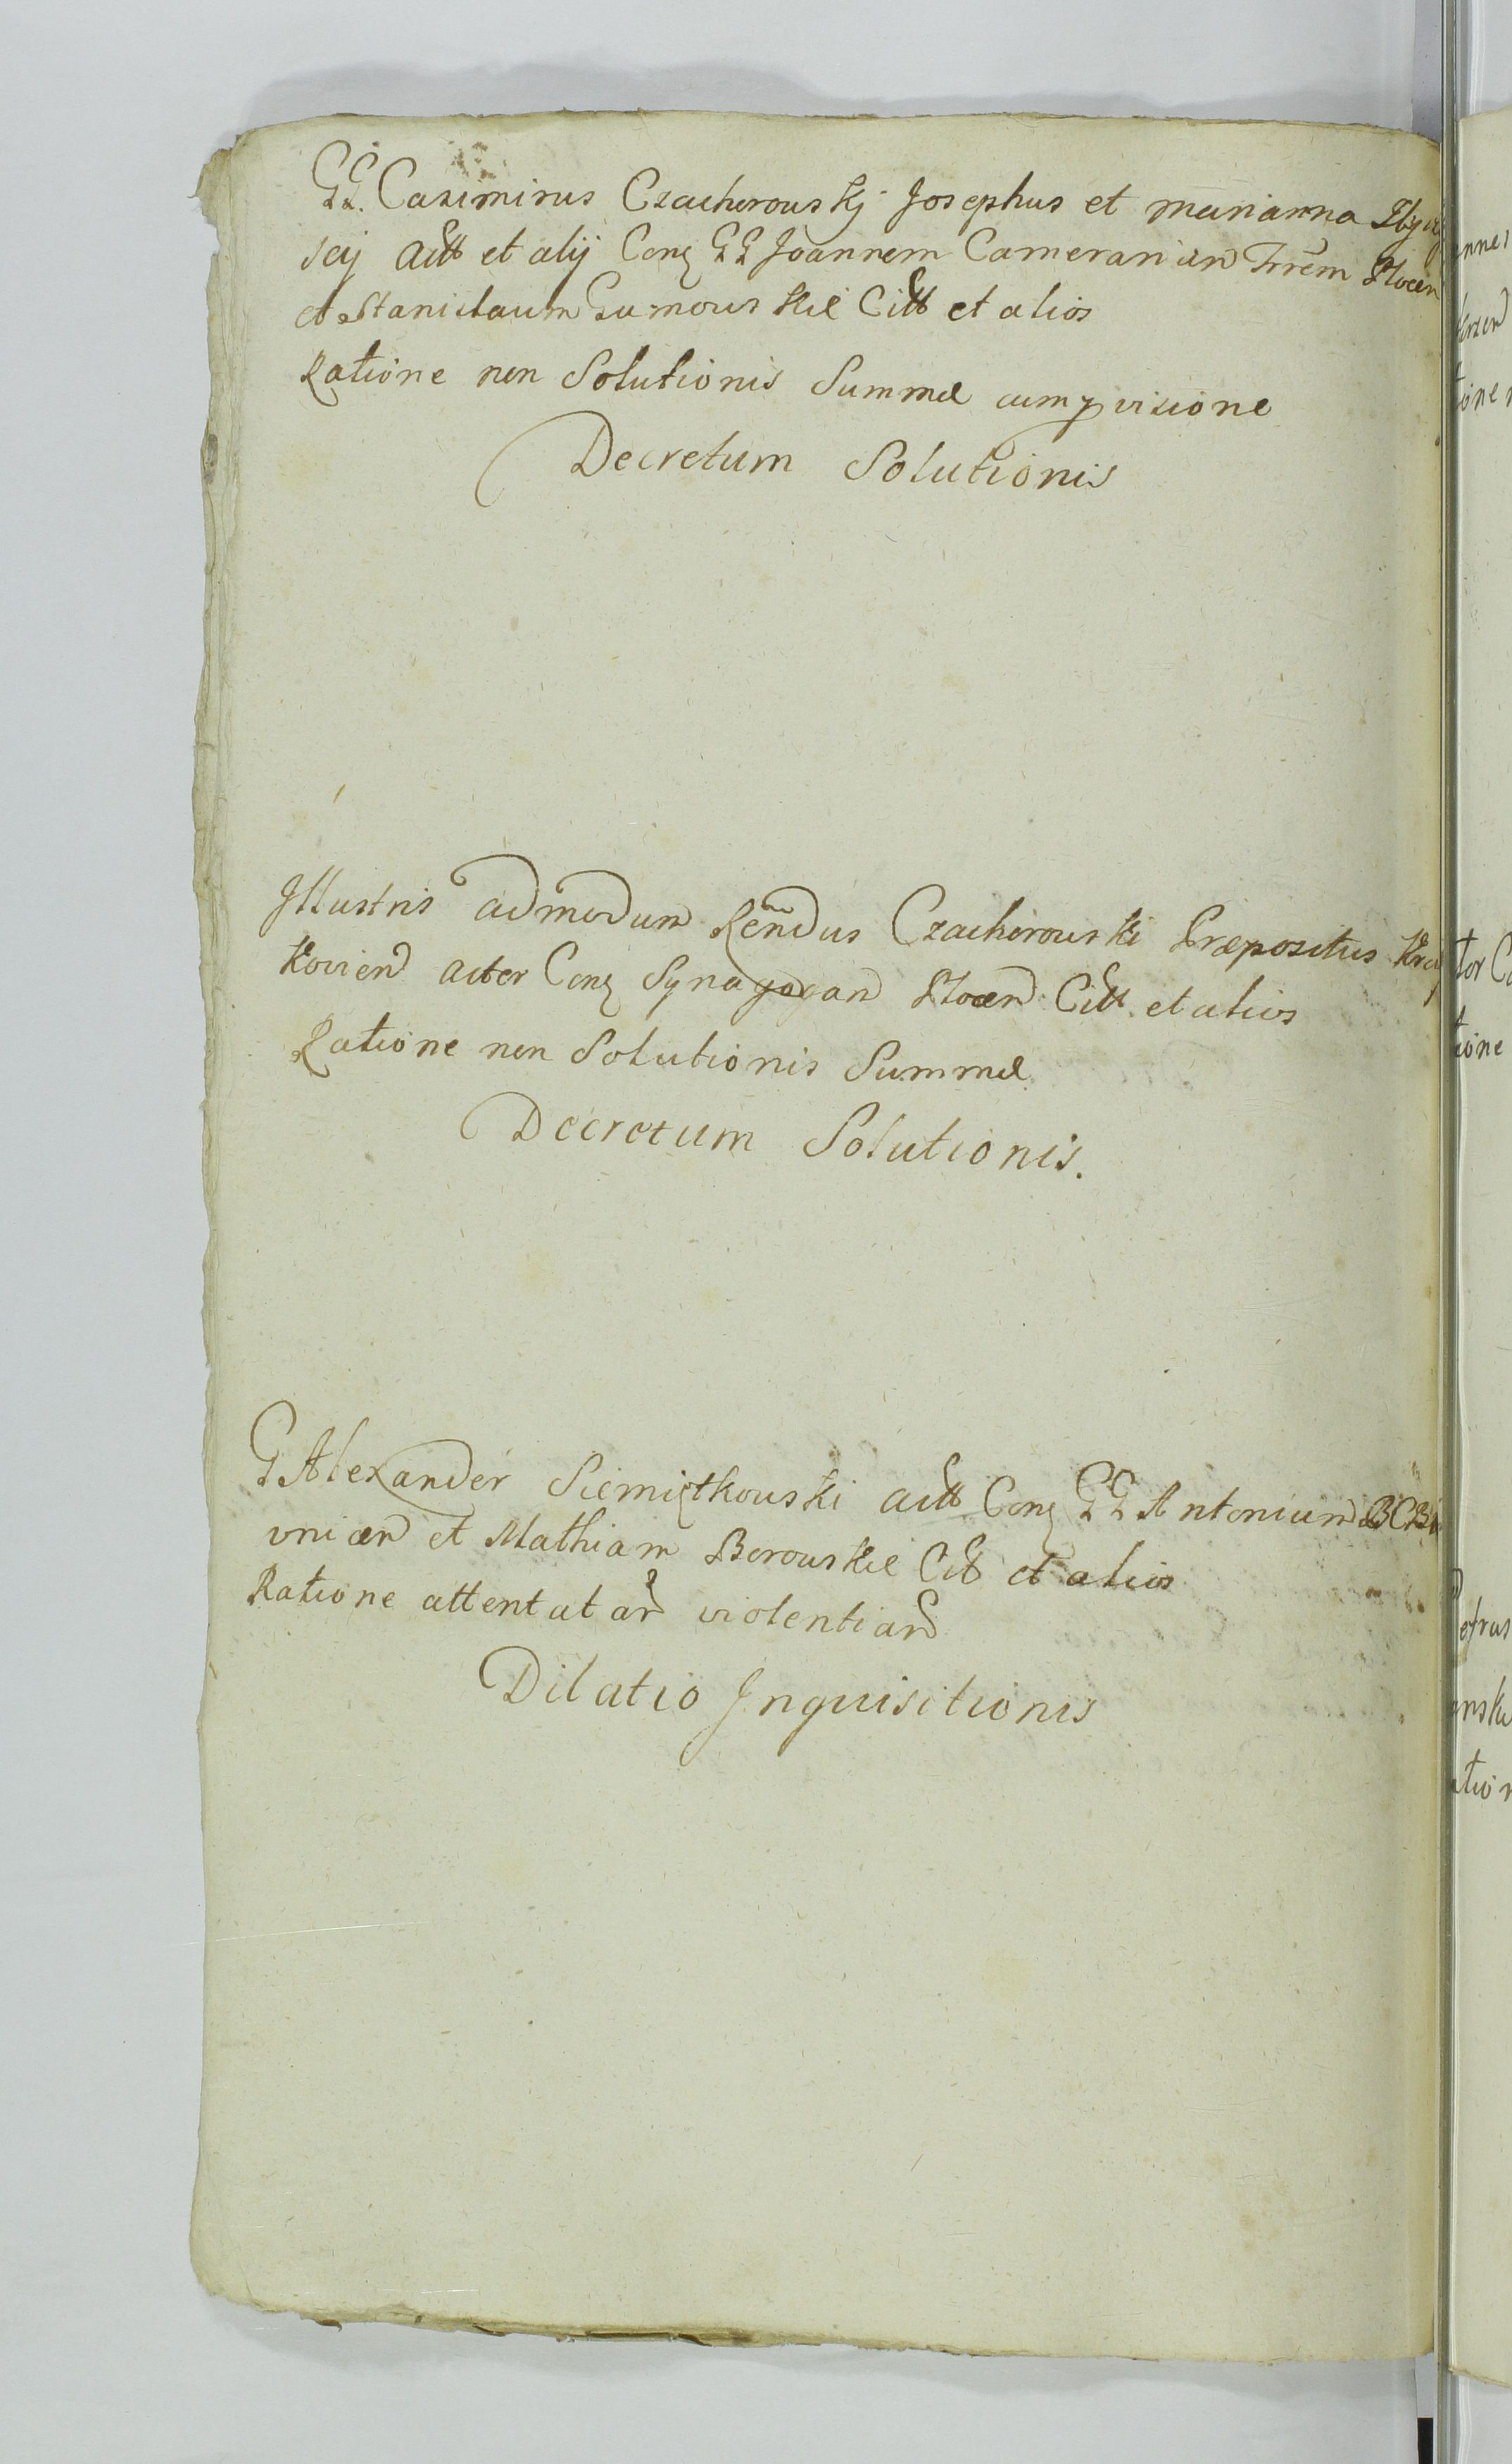 GG. Casimirus Czacherouskj Josephus et marianna
sey Actt et alij Conq GG Joannem Camerariun Trrem Plocen
et Stanislaum Gumouskie Citt et alios
Ratione non Solutionis Summæ cum pvisione
Decretum Solutionis
Jllustris admodum Rendus Czacherouski Præpositus
kovien Actor Conq Synagogan Plocen Citt et alios
Ratione non Solutionis Summæ
Decretum Solutionis.
G Alexander Siemiątkouski Actt Conq GG Antonium
unicen et Mathiam Borouskie Citt et alios
Ratione attentatar violentiar
Dilatio Jnquisitionis